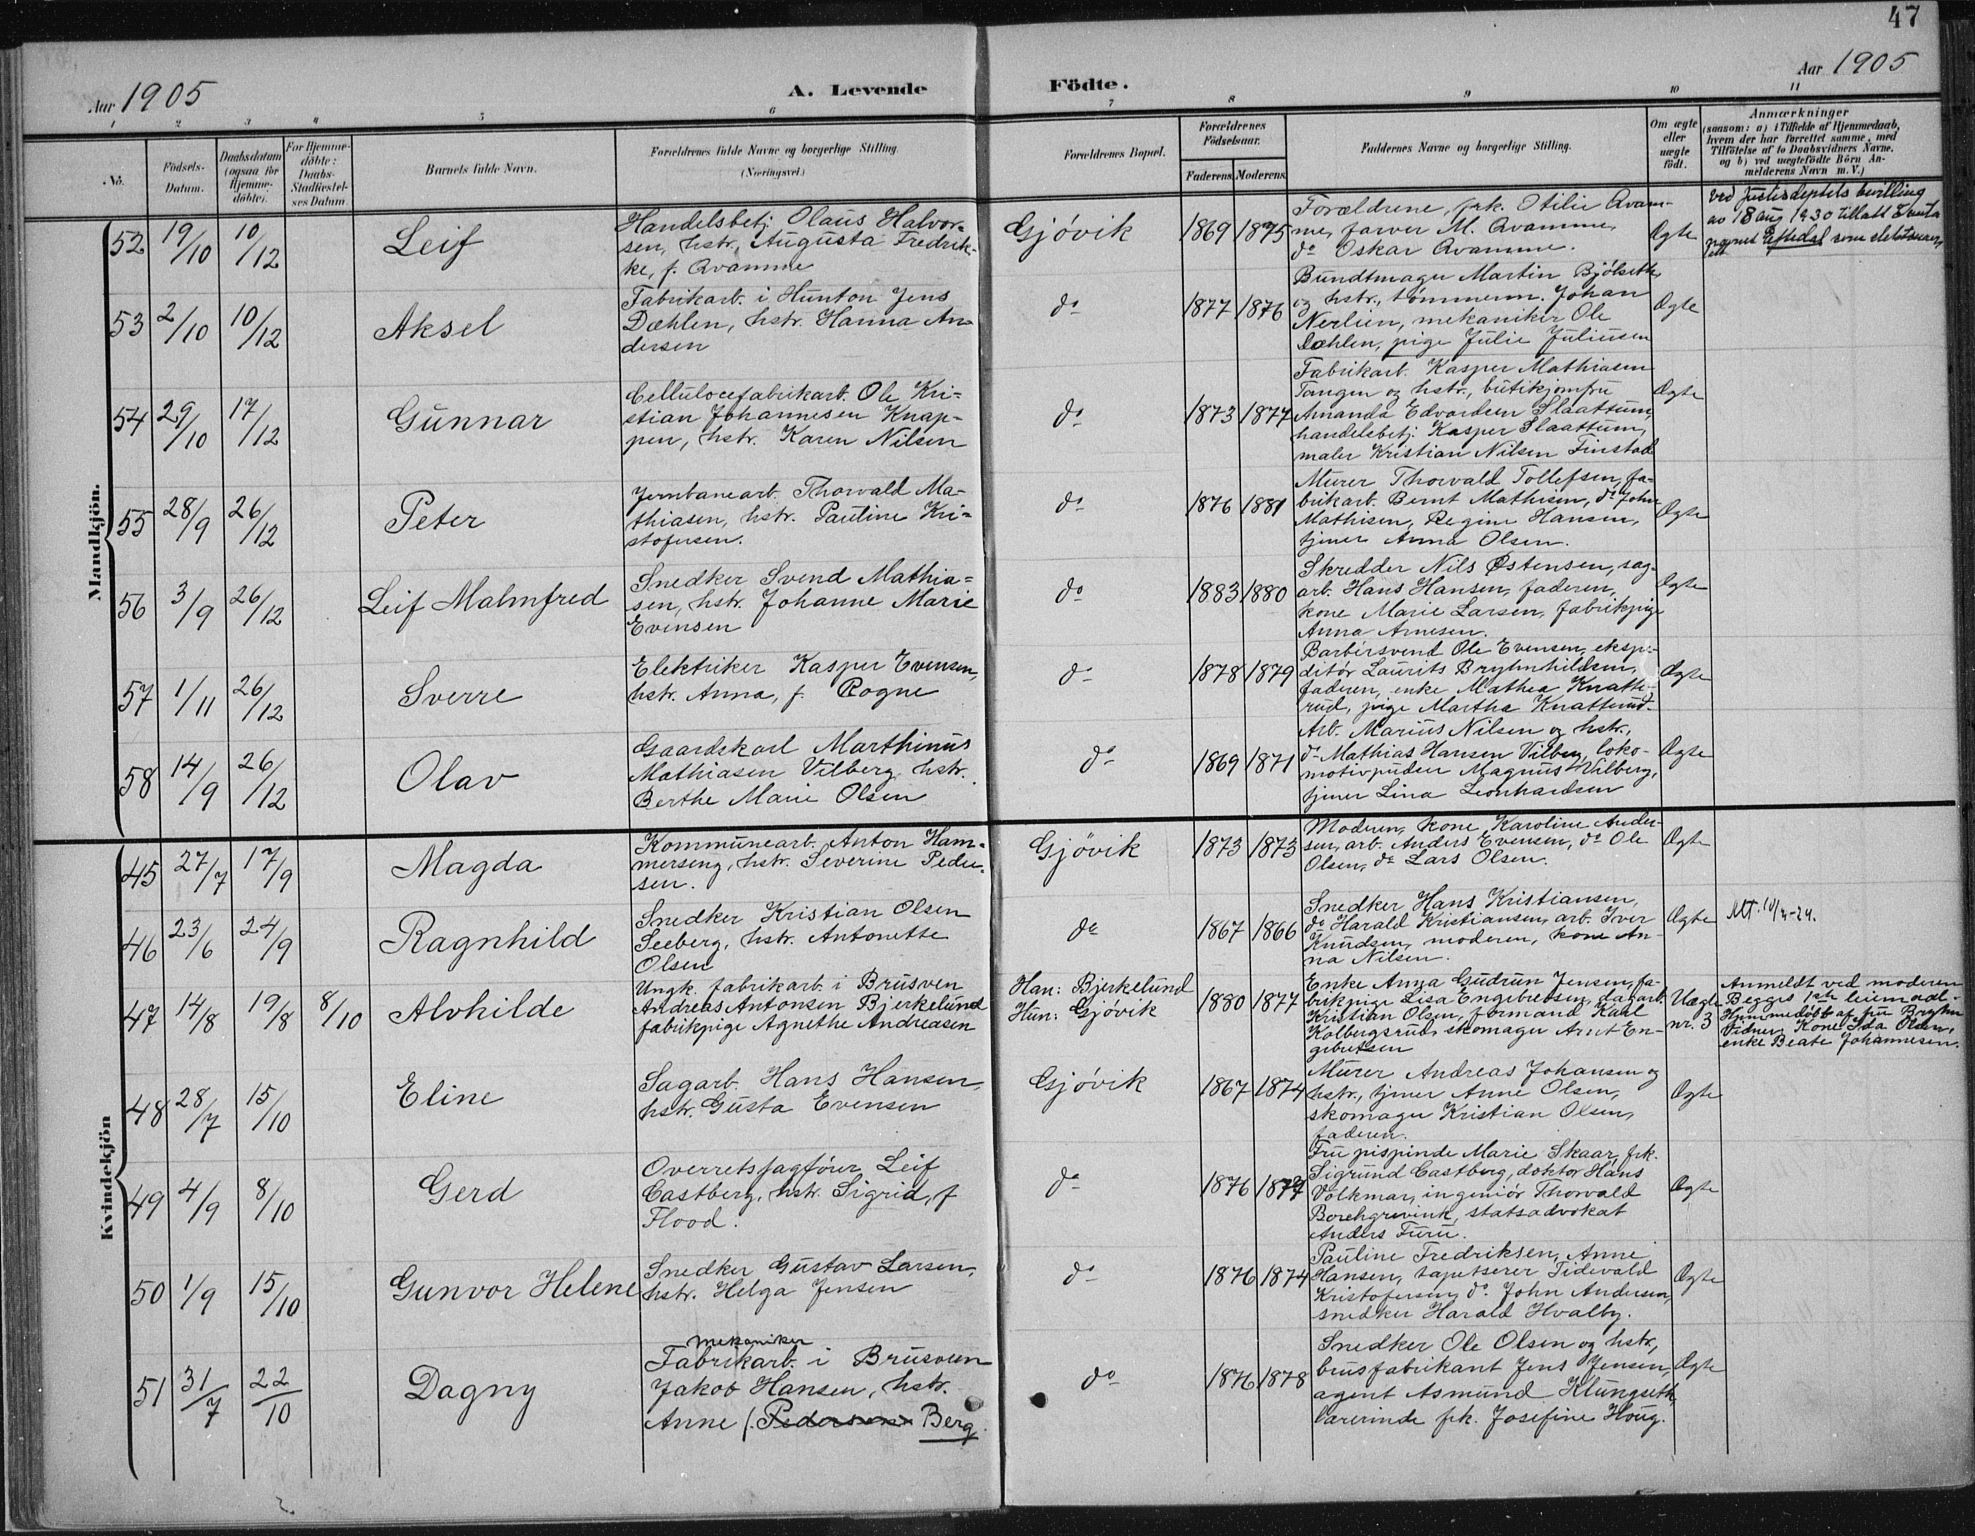 47
Aar 1905
A. Levende Födte.
Aar 1905
1 2 3 4 5 6 7 8 9 10 11
No.
Födsels-
Datum.
Daabsdatum
(ogsaa for
Hjemme-
döbte).
For Hjemme-
döbte:
Daabs-
Stadfæstel-
ses Datum.
Barnets fulde Navn.
Forældrenes fulde Navne og borgerlige Stilling.
(Næringsvei.)
Forældrenes Bopæl.
Forældrenes
Födselsaar.
Faderens. Moderens.
Faddernes Navne og borgerlige Stilling.
Om ægte
eller
uægte
födt.
Anmærkninger
(saasom: a) i Tilfælde af Hjemmedaab,
hvem der har forrettet samme, med
Tilföielse af to Daabsvidners Navne.
og b) ved uægtefödte Börn An-
melderens Navn m. V.)
Mandkjön.
52 19/10 10/12 Leif
Handelsbetj. Olaus Halvor-
sen, hstr. Augusta Fredrik-
ke, f. Qvamme
Gjövik 1869 1875
Forældrene, frk. Otilie Qvam-
me, farver M. Qvamme,
do Oskar Qvamme.
Ægte
Ved Justisdeptets bevilling
av 18 aug 1930 tillatt
navnet Eftedal som slektsnavn
53 2/10 10/12 Aksel
Fabrikarb. i Hunton Jens
Dæhlen, hstr. Hanna An-
dersen
do 1877 1876
Bundtmager Martin Bjölseth
og hstr., tömmerm. Johan
Nerlien, mekaniker Ole
Dæhlen, pige Julie Juliusen
Ægte
54 29/10 17/12 Gunnar
Cellulosefabrikarb. Ole Kri-
stian Johannesen Knap-
pen, hstr. Karen Nilsen
do 1873 1877
Fabrikarb. Kasper Mathiasen
Tangen og hstr., butikjomfru
Amanda Edvardsen Slaattum,
handelsbetj. Kasper Slaattum,
maler Kristian Nilsen Finstad
Ægte
55 28/9 26/12 Peter
Jernbanearb. Thorvald Ma-
thiasen, hstr. Pauline Kri-
stofersen.
do 1876 1881
Murer Thorvald Tollefsen, fa-
brikarb. Bernt Mathisen, do John
Mathisen, Regine Hansen,
tjener Anna Olsen.
Ægte
56 3/9 26/12 Leif Malmfred
Snedker Svend Mathia-
sen, hstr. Johanne Marie
Evensen
do 1883 1880
Skredder Nils Östensen, sag-
arb. Hans Hansen, faderen,
kone Marie Larsen, fabrikpige
Anna Arnesen.
Ægte
57 1/11 26/12 Sverre
Elektriker Kasper Evensen,
hstr. Anna, f. Rogne
do 1878 1879
Barbersvend Ole Evensen, ekspe-
ditör Laurits Brynhildsen,
faderen, enke Mathea Knatte-
rud, pige Martha Knatterud.
Ægte
58 14/9 26/12 Olav
Gaardskarl Marthinus
Mathiasen Vilberg, hstr.
Berthe Marie Olsen
do 1869 1871
Arb. Marius Nilsen og hstr.,
do Mathias Hansen Vilberg, loko-
motivpudser Magnus Vilberg,
tjener Lina Leonhardsen
Ægte
Kvindekjön
45 27/7 17/9 Magda
Kommunearb. Anton Ham-
merseng, hstr. Severine Peder-
sen.
Gjövik 1873 1873
Moderen, kone Karoline Ander-
sen, arb. Anders Evensen, do Ole
Olsen, do Lars Olsen.
Ægte
46 23/6 24/9 Ragnhild
Snedker Kristian Olsen
Seeberg, hstr. Antonette
Olsen
do 1867 1866
Snedker Hans Kristiansen,
do Harald Kristiansen, arb. Iver
Knudsen, moderen, kone An-
na Nilsen.
Ægte
47 14/8 19/8 8/10 Alvhilde
Ungk. fabrikarb. i Brusven
Andreas Antonsen Bjerkelund
fabrikpige Agnethe Andreasen
Han: Bjerkelund
Hun: Gjövik
1880 1877
Enke Anna Gudrun Jensen, fa-
brikpige Lisa Engebretsen, sagarb.
Kristian Olsen, formand Karl
Kolbergsrud, skomager Arnt En-
gebretsen
Uægte
nr. 3
Anmeldt ved moderen
Begges 1ste leiermaal-
Hjemmedöbt af fru Bryhn
Vidner: Kone Ida Olsen,
enke Beate Johannesen.
48 28/7 15/10 Eline
Sagarb. Hans Hansen,
hstr. Gusta Evensen
Gjövik 1867 1874
Murer Andreas Johansen og
hstr., tjener Anne Olsen,
skomager Kristian Olsen,
faderen.
Ægte
49 4/9 8/10 Gerd
Overretssagförer Leif
Castberg, hstr. Sigrid, f
Flood.
do 1876
Fru Marie Skaar, frk.
Sigrund Castberg, doktor Hans
Volkmar, ingeniör Thorvald
Borchgrevink, statsadvokat
Anders Furu.
Ægte
50 1/9 15/10 Gunvor Helene
Snedker Gustav Larsen,
hstr. Helga Jensen
do 1876 1874
Pauline Fredriksen, Anne
Hansen, tapetserer Tidevald
Kristofersen, do John Andersen,
snedker Harald Hvalby.
Ægte
51 31/7 22/10 Dagny
mekaniker
Fabrikarb. i Brusveen
Jakob Hansen, hstr.
Anne f. Pedersen Berg.
do 1876 1878
Snedker Ole Olsen og hstr.,
brusfabrikant Jens Jensen,
agent Asmund Klungseth,
lærerinde frk. Josefine Houg.
Ægte